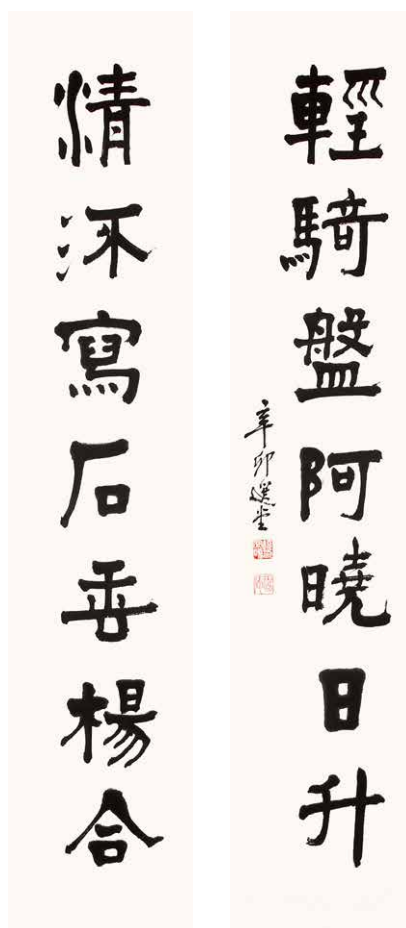 輕騎盤阿曉日升
辛卯選堂
清寫石垂楊合